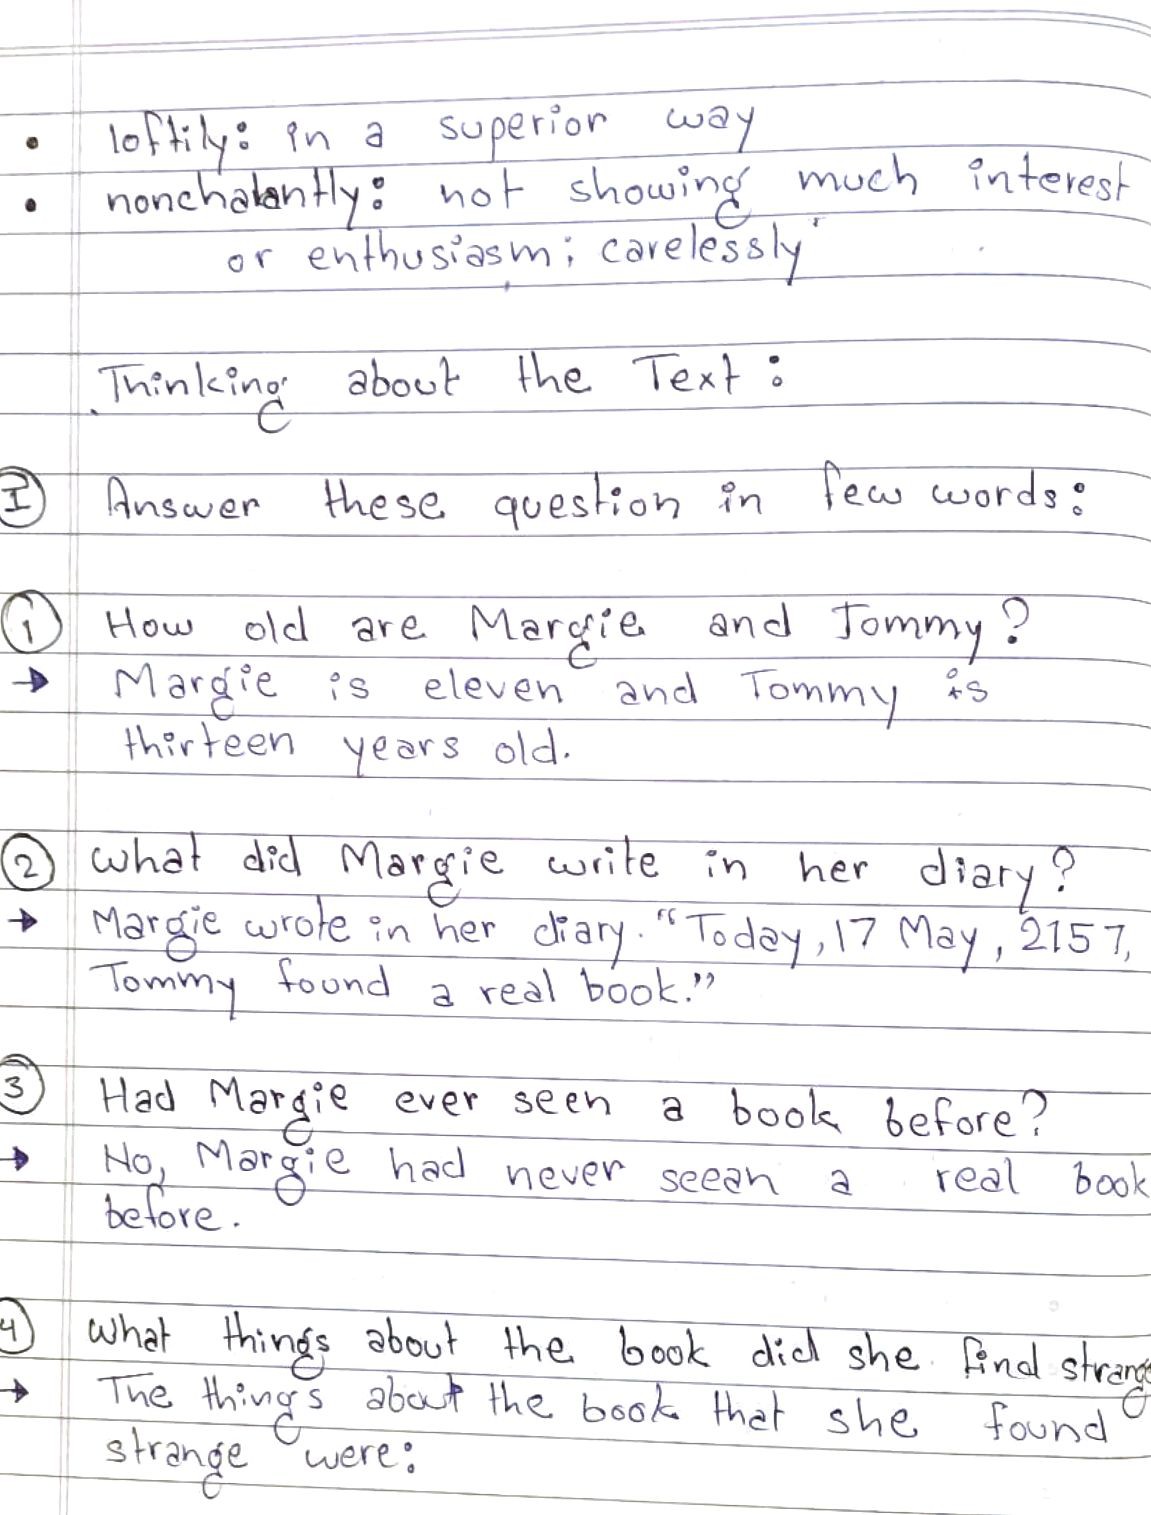 • loftily: in a superior way
• nonchalantly: not showing much interest
or enthusiasm; carelessly"
Thinking about the Text:
I Answer these question in few words:
1 How old are Margie and Tommy?
→ Margie is eleven and Tommy is
thirteen years old.
2 What did Margie write in her diary?
→ Margie wrote in her diary. "Today, 17 May, 2157,
Tommy found a real book."
3 Had Margie ever seen a book before?
→ No, Margie had never seean a real book
before.
4 What things about the book did she find strange
→ The things about the book that she found
strange were: